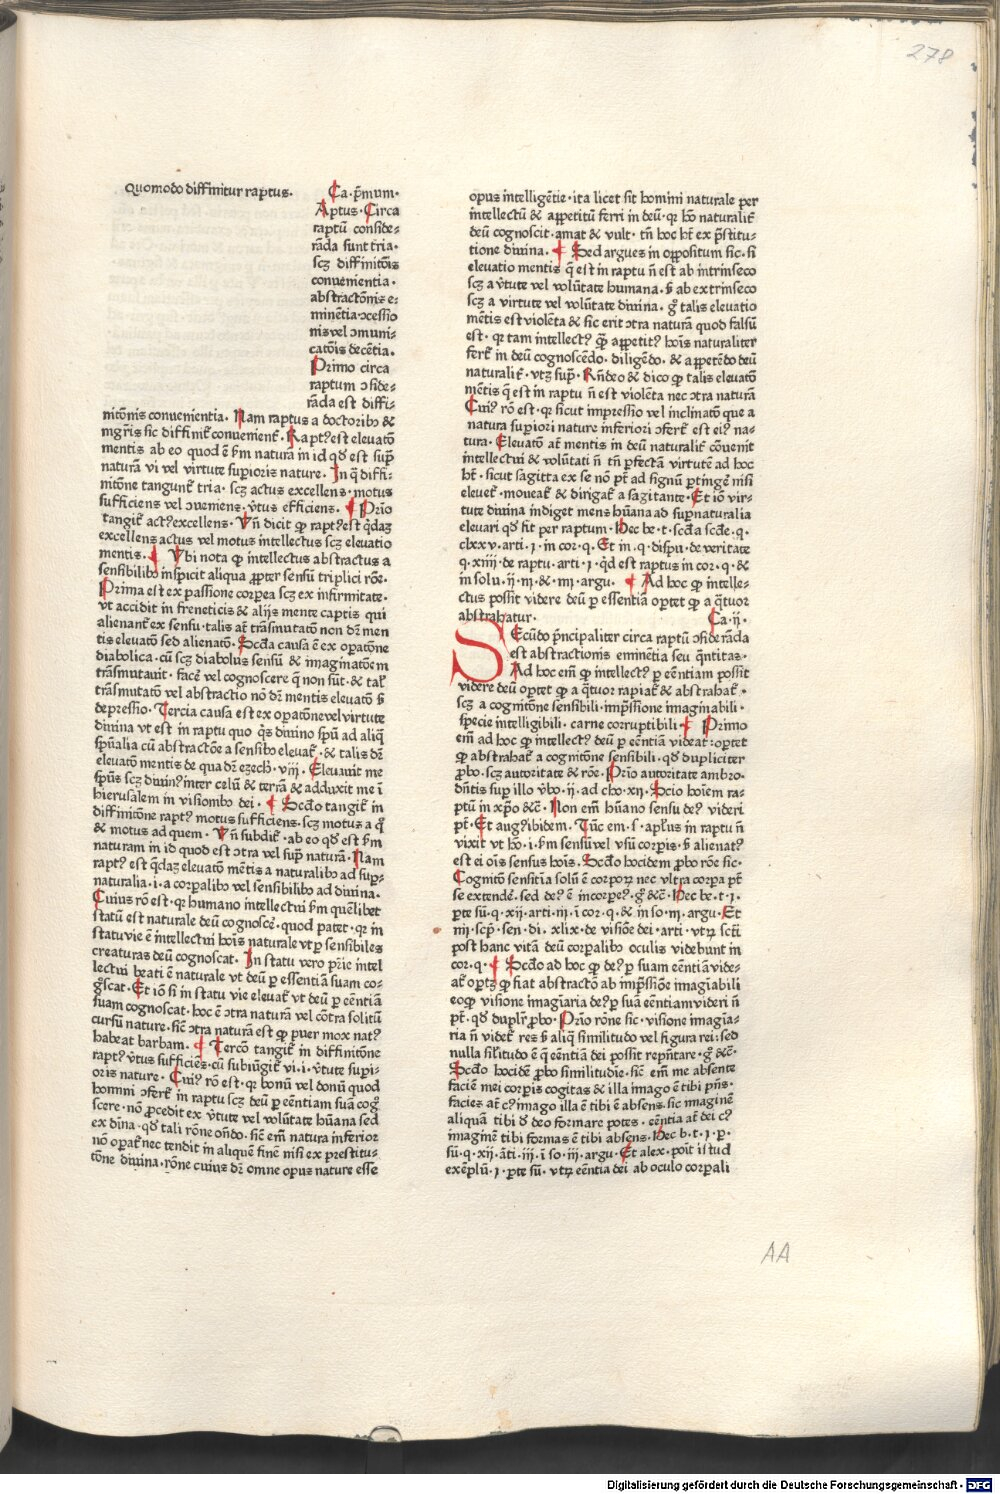 278
Quomodo diffinitur raptus. Ca. p̄mum.
Aptus. Circa
raptū conside-
rāda sunt tria.
scʒ diffinitōis
conuenientia.
abstractōnis e-
minētia ↄcessio
nis vel ↄmuni-
catōis decētia.
Primo circa
raptum ↄside-
rāda est diffi-
nitōnis conuenientia. Nam raptus a doctoribꝯ &
mgr̄is sic diffinit᷑ conuenient᷑. Rapt᷒ est eleuatō
mentis ab eo quod ē ẜm naturā in id qd̄ est sup̄
naturā vi vel virtute sup̄ioris nature. In q̄ diffi-
nitōne tangunt᷑ tria. scʒ actus excellens. motus
sufficiens vel ↄuemens. v̄tus efficiens. ¶ Prīo
tangit᷑ act᷒ excellens. Vn̄ dicit ꝙ rapt᷒ est q̄daʒ
excellens actus vel motus intellectus scʒ eleuatio
mentis. ¶ Vbi nota ꝙ intellectus abstractus a
sensibilibꝯ inspicit aliqua ꝓpter sensū triplici rōe.
Prima est ex passione corꝑea scʒ ex infirmitate.
vt accidit in freneticis & alijs mente captis qui
alienant᷑ ex sensu. talis at᷑ trāsmutatō non dr̄ men
tis eleuatō sed alienatō. Scd̄a causa ē ex oꝑatōne
diabolica. cū scʒ diabolus sensū & imaginatōem
trāsmutauit. facē vel cognoscere q̄ non sūt. & tal᷑
trāsmutatō vel abstractio nō dr̄ mentis eleuatō ẜ
depressio. Tercia causa est ex oꝑatōne vel virtute
diuina vt est in raptu quo q̄s diuino spū ad aliq̄
spūalia cū abstractōe a sensibꝯ eleuat᷑. & talis dr̄
eleuatō mentis de qua dr̄ ezech. viij. Eleuauit me
spūs scʒ diuin᷒ inter celū & terrā & adduxit me ī
hierusalem in visionibꝯ dei. ¶ Scd̄o tangit᷑ in
diffinitōne rapt᷒ motus sufficiens. scʒ motus a q̊
& motus ad quem. Vn̄ subdit᷑. ab eo qd̄ est ẜm
naturam in id quod est ↄtra vel sup̄ naturā. Nam
rapt᷒ est q̄daʒ eleuatō mētis a naturalibꝯ ad sup̄-
naturalia. i. a corꝑalibꝯ vel sensibilibꝯ ad diuina.
Cuius rō est. qr humano intellectui ẜm quēlibet
statū est naturale deū cognoscē. quod patet. qr in
statu vie ē intellectui hoīs naturale vt ꝑ sensibiles
creaturas deū cognoscat. In statu vero pr̄ie intel
lectui beati ē naturale vt deū ꝑ essentiā suam co-
gnoscat. Et iō si in statu vie eleuat᷑ vt deū ꝑ eēntiā
suam cognoscat. hoc ē ↄtra naturā vel cōtra solitū
cursū nature. sic̄ ↄtra naturā est ꝙ puer mox nat᷒
habeat barbam. ¶ Tercō tangit᷑ in diffinitōne
rapt᷒ v̄tus sufficiēs. cū subiūgit᷑ vi. i. v̄tute sup̄i-
oris nature. Cui᷒ rō est. qr bonū vel donū quod
homini ↄfert᷑ in raptu scʒ deū ꝑ eēntiam suā cog̊
scere. nō ꝓcedit ex v̄tute vel volūtate hūana sed
ex dīna. qd̄ tali rōne on̄do. sic̄ em̄ natura inferior
nō oꝑat᷑ nec tendit in aliquē finē nisi ex prestitu-
tōne diuina. rōne cuius dr̄ omne opus nature esse
opus intelligētie. ita licet sit homini naturale per
intellectū & appetitū ferri in deū. qr hō naturalit᷑
deū cognoscit. amat & vult. tn̄ hoc ht᷑ ex p̄stitu-
tione diuina. ¶ Sed argues in oppositum sic. si
eleuatio mentis q̄ est in raptu n̄ est ab intrinseco
scʒ a v̄tute vel volūtate humana. ẜ ab extrinseco
scʒ a virtute vel volūtate diuina. g̊ talis eleuatio
mētis est violēta & sic erit ↄtra naturā quod falsū
est. qr tam intellect᷒ q̄ꝫ appetit᷒ hoīs naturaliter
fert᷑ in deū cognoscēdo. diligēdo. & appetēdo deū
naturalit᷑. vtʒ sup̄. Rn̄deo & dico ꝙ talis eleuatō
mētis q̄ est in raptu n̄ est violēta nec ↄtra naturā
Cui᷒ rō est. qr sicut impressio vel inclinatō que a
natura sup̄iori nature inferiori ↄfert᷑ est ei᷒ na-
tura. Eleuatō at᷑ mentis in deū naturalit᷑ cōuenit
intellectui & volūtati n̄ tn̄ ꝑfectā virtutē ad hoc
ht᷑. sicut sagitta ex se nō pt᷑ ad signū ꝑtingē nisi
eleuet᷑. moueat᷑ & dirigat᷑ a sagitante. Et iō vir-
tute diuina indiget mens hūana ad sup̄naturalia
eleuari qd̄ fit per raptum. Hec be. t. scd̄a scd̄e. q.
clxxv. arti. i. in cor. q. Et in. q. dispu. de veritate
q. xiij. de raptu. arti. i. qd̄ est raptus in cor. q. &
in solu. ij. iij. & iiij. argu. ¶ Ad hoc ꝙ intelle-
ctus possit videre deū ꝑ essentiā oꝑtet ꝙ a q̄tuor
abstrahatur. Ca. ij.
SEcūdo p̄ncipaliter circa raptū ↄsiderāda
est abstractionis eminētia seu q̄ntitas.
Ad hoc em̄ ꝙ intellect᷒ ꝑ eēntiam possit
videre deū oꝑtet ꝙ a q̄tuor rapiat᷑ & abstrahat᷑.
scʒ a cognitōne sensibili. imp̄ssione imaginabili.
specie intelligibili. carne corruptibili. ¶ Primo
em̄ ad hoc ꝙ intellect᷒ deū ꝑ eēntiā videat: oꝑtet
ꝙ abstrahat᷑ a cognitōne sensibili. qd̄ dupliciter
ꝓbo. scʒ autoritate & rōe. Prīo autoritate ambro.
dn̄tis sup̄ illo v̄bo. ij. ad cho. xij. Scio hoīem ra-
ptū in xp̄o &c̄. Non em̄ hūano sensu de᷒ videri
pt᷑. Et aug᷒ ibidem. Tūc em. s. ap̄lus in raptu n̄
vixit vt hō. i. ẜm sensū vel vsū corꝑis. ẜ alienat᷒
est ei oīs sensus hoīs. Scd̄o hocidem ꝓbo rōe sic.
Cognitō sensitīa solū ē corꝑoꝝ nec vltra corꝑa pt᷑
se extendē. sed de᷒ ē incorꝑe᷒. g̊ &c̄. Hec be. t. i.
ꝑte sū. q. xij. arti. iij. ī cor. q. & in so. iij. argu. Et
iiij. scp̄. sen. di. xlix. de visiōe dei. arti. vtꝝ sc̄ti
post hanc vitā deū corꝑalibꝯ oculis videbunt in
cor. q. ¶ Scd̄o ad hoc ꝙ de᷒ ꝑ suam eēntiā vide-
at᷑ oꝑtʒ ꝙ fiat abstractō ab imp̄ssiōe imagīabili
eoꝙ visione imagiaria de᷒ ꝑ suā eēntiam videri n̄
pt᷑. qd̄ duplr̄ ꝓbo. Prīo rōne sic. visione imagia-
ria n̄ videt᷑ res ẜ aliq̄ similitudo vel figura rei. sed
nulla silitudo ē q̄ eēntiā dei possit repn̄tare. g̊ &c̄.
Scd̄o hocidē ꝓbo similitudīe. sic̄ em̄ me absente
faciē mei corꝑis cogitas & illa imago ē tibi p̄ns.
facies at᷑ c᷒ imago illa ē tibi ē absens. sic imaginē
aliquā tibi d̄ deo formare potes. eēntia at᷑ dei c᷒
imaginē tibi formas ē tibi absens. Hec b. t. i. p.
sū. q. xij. āti. iij. ī so. iij. argu. Et alex. poīt istud
exēplū. i. ꝑte sū. vtꝝ eēntia dei ab oculo corꝑali
AA
Digitalisierung gefördert durch die Deutsche Forschungsgemeinschaft - DFG